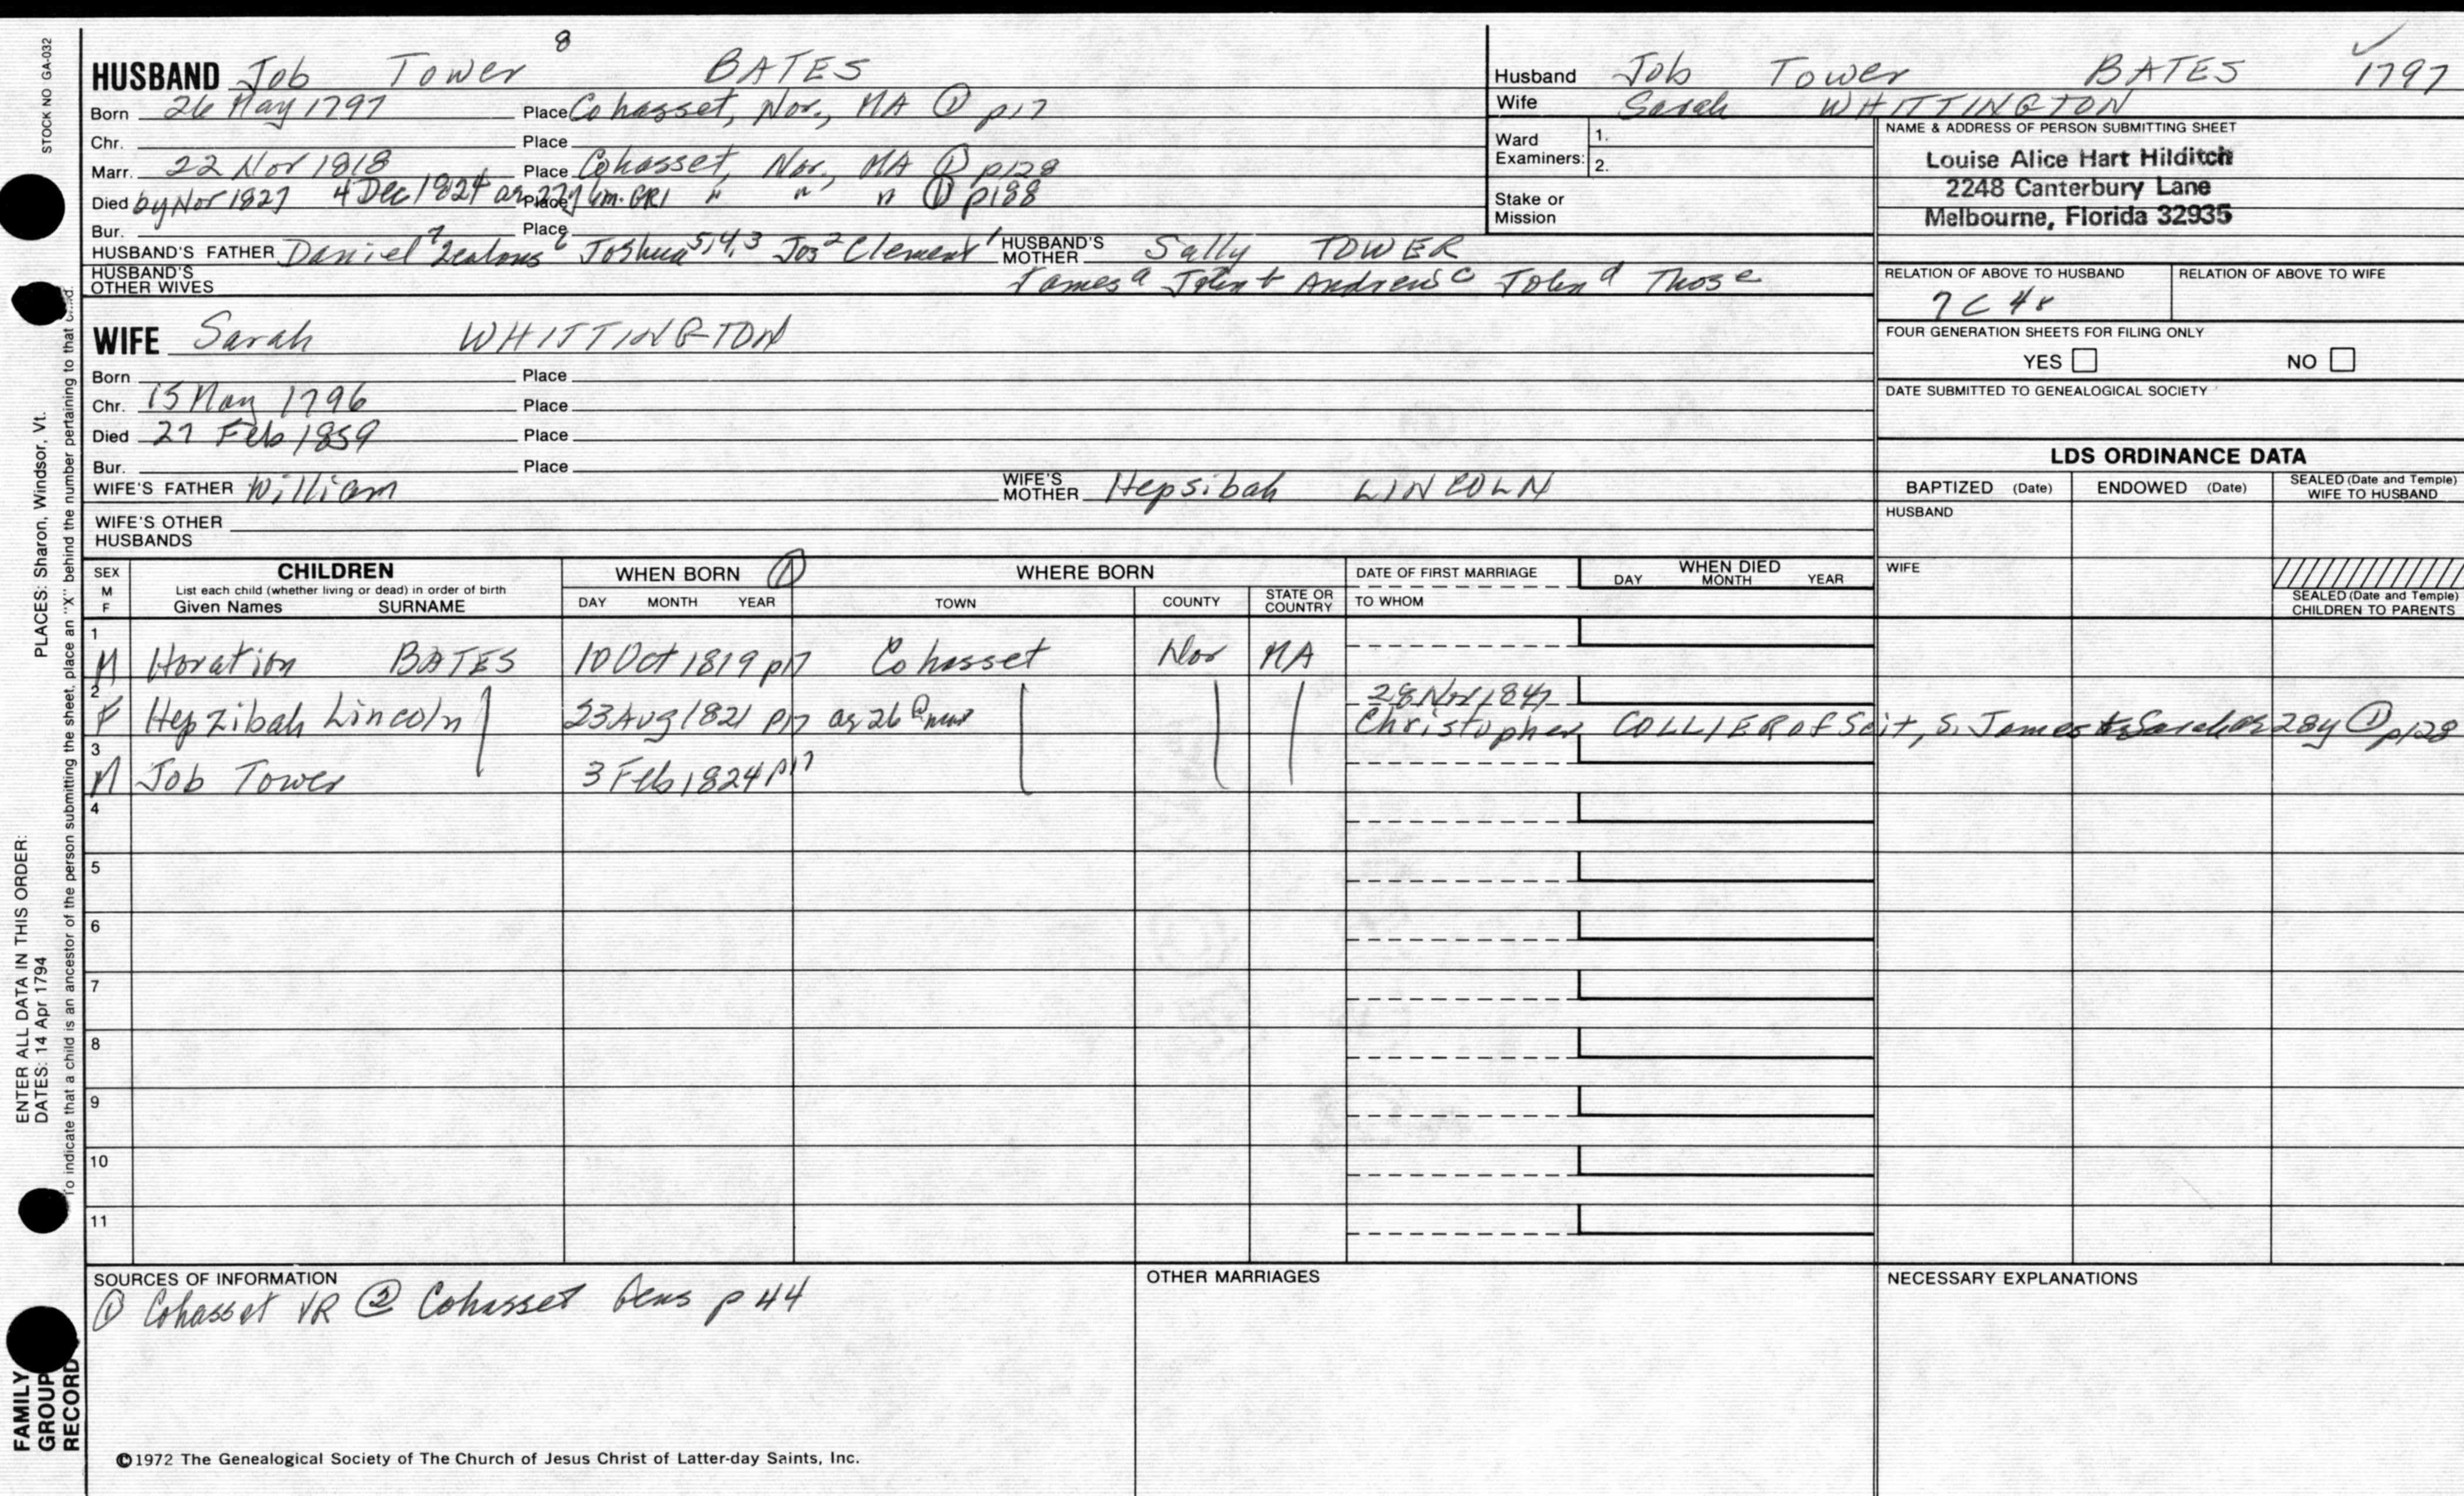 STOCK NO GA-032
8
HUSBAND Job Tower BATES
Born 26 May 1797 Place Cohasset, Nor., MA ① p17
Chr. Place
Marr. 22 Nov 1818 Place Cohasset, Nor, MA ① p128
Died by Nov 1827 4 Dec 1824 Place 27y 6m. GR1 " " " ① p188
Bur. Place
HUSBAND'S FATHER Daniel 7 Zealous 6 Joshua 5,4,3 Jos 2 Clement 1 HUSBAND'S MOTHER Sally TOWER
HUSBAND'S OTHER WIVES James a John Andrew c John d Thos e
Husband Job Tower BATES 1797
Wife Sarah WHITTINGTON
Ward Examiners: 1.
2.
Stake or Mission
NAME & ADDRESS OF PERSON SUBMITTING SHEET
Louise Alice Hart Hilditch
2248 Canterbury Lane
Melbourne, Florida 32935
RELATION OF ABOVE TO HUSBAND RELATION OF ABOVE TO WIFE
7C 4r
FOUR GENERATION SHEETS FOR FILING ONLY
YES NO
DATE SUBMITTED TO GENEALOGICAL SOCIETY
WIFE Sarah WHITTINGTON
Born Place
Chr. 15 May 1796 Place
Died 27 Feb 1859 Place
Bur. Place
WIFE'S FATHER William WIFE'S MOTHER Hepsibah LINCOLN
WIFE'S OTHER HUSBANDS
LDS ORDINANCE DATA
BAPTIZED (Date) ENDOWED (Date) SEALED (Date and Temple) WIFE TO HUSBAND
HUSBAND
WIFE
SEALED (Date and Temple) CHILDREN TO PARENTS
SEX M F CHILDREN WHEN BORN ① WHERE BORN DATE OF FIRST MARRIAGE WHEN DIED
List each child (whether living or dead) in order of birth DAY MONTH YEAR
Given Names SURNAME DAY MONTH YEAR TOWN COUNTY STATE OR COUNTRY TO WHOM
1 M Horation BATES 10 Oct 1819 p17 Cohasset Nor MA
2 28 Nov 1847
F Hepzibah Lincoln 23 Aug 1821 p17 as 26 @ mar Christopher COLLIER of Scit, S. James & Sarah as 28y ① p128
3 M Job Tower 3 Feb 1824 p17
4
5
6
7
8
9
10
11
SOURCES OF INFORMATION
① Cohasset VR ② Cohasset Gens p 44
OTHER MARRIAGES
NECESSARY EXPLANATIONS
©1972 The Genealogical Society of The Church of Jesus Christ of Latter-day Saints, Inc.
ENTER ALL DATA IN THIS ORDER:
DATES: 14 Apr 1794 PLACES: Sharon, Windsor, Vt.
To indicate that a child is an ancestor of the person submitting the sheet, place an "X" behind the number pertaining to that child.
FAMILY GROUP RECORD